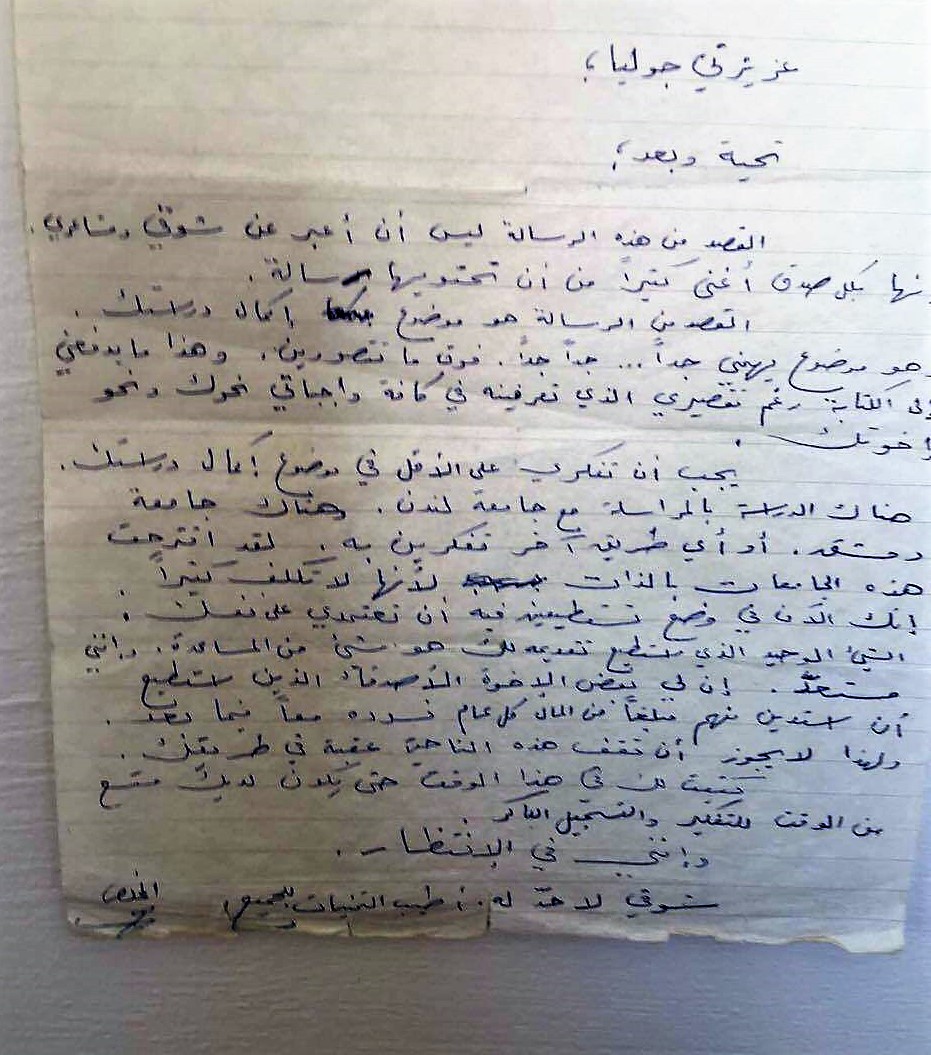 عزيزتي جوليا،
تحية وبعد،
القصد من هذه الرسالة ليس أن أعبر عن شوقي ومشاعري.
إنها بكل صدق أغنى كثيراً من أن تحتويها رسالة.
القصد من الرسالة هو موضوع إكمال دراستك.
وهو موضوع يهمني جداً... جداً جداً. فوق ما تتصورين. وهذا ما يدفعني
إلى الكتابة رغم تقصيري الذي تعرفينه في كافة واجباتي نحوك ونحو
إخوتك.
يجب أن تفكري على الأقل في موضوع إكمال دراستك.
هناك الدراسة بالمراسلة مع جامعة لندن. وهناك جامعة
دمشق. أو أي طريق آخر تفكرين به. لقد اقترحت
هذه الجامعات بالذات لأنها لا تكلف كثيراً.
إنك الآن في وضع تستطيعين فيه أن تعتمدي على نفسك.
الشيء الوحيد الذي أستطيع تقديمه لك هو شيء من المساعدة. وإنني
مستعدّ. إن لي بعض الإخوة الأصدقاء الذين أستطيع
أن استدين منهم مبلغاً من المال كل عام نسدده معاً فيما بعد.
ولهذا لا يجوز أن تقف هذه الناحية عقبة في طريقك.
كتبت لك في هذا الوقت حتى يكون لديك متسع
من الوقت للتفكير والتسجيل الباكر.
وإنني في الانتظار.
شوقي لا حدّ له. أطيب التحيات للجميع، المخلص